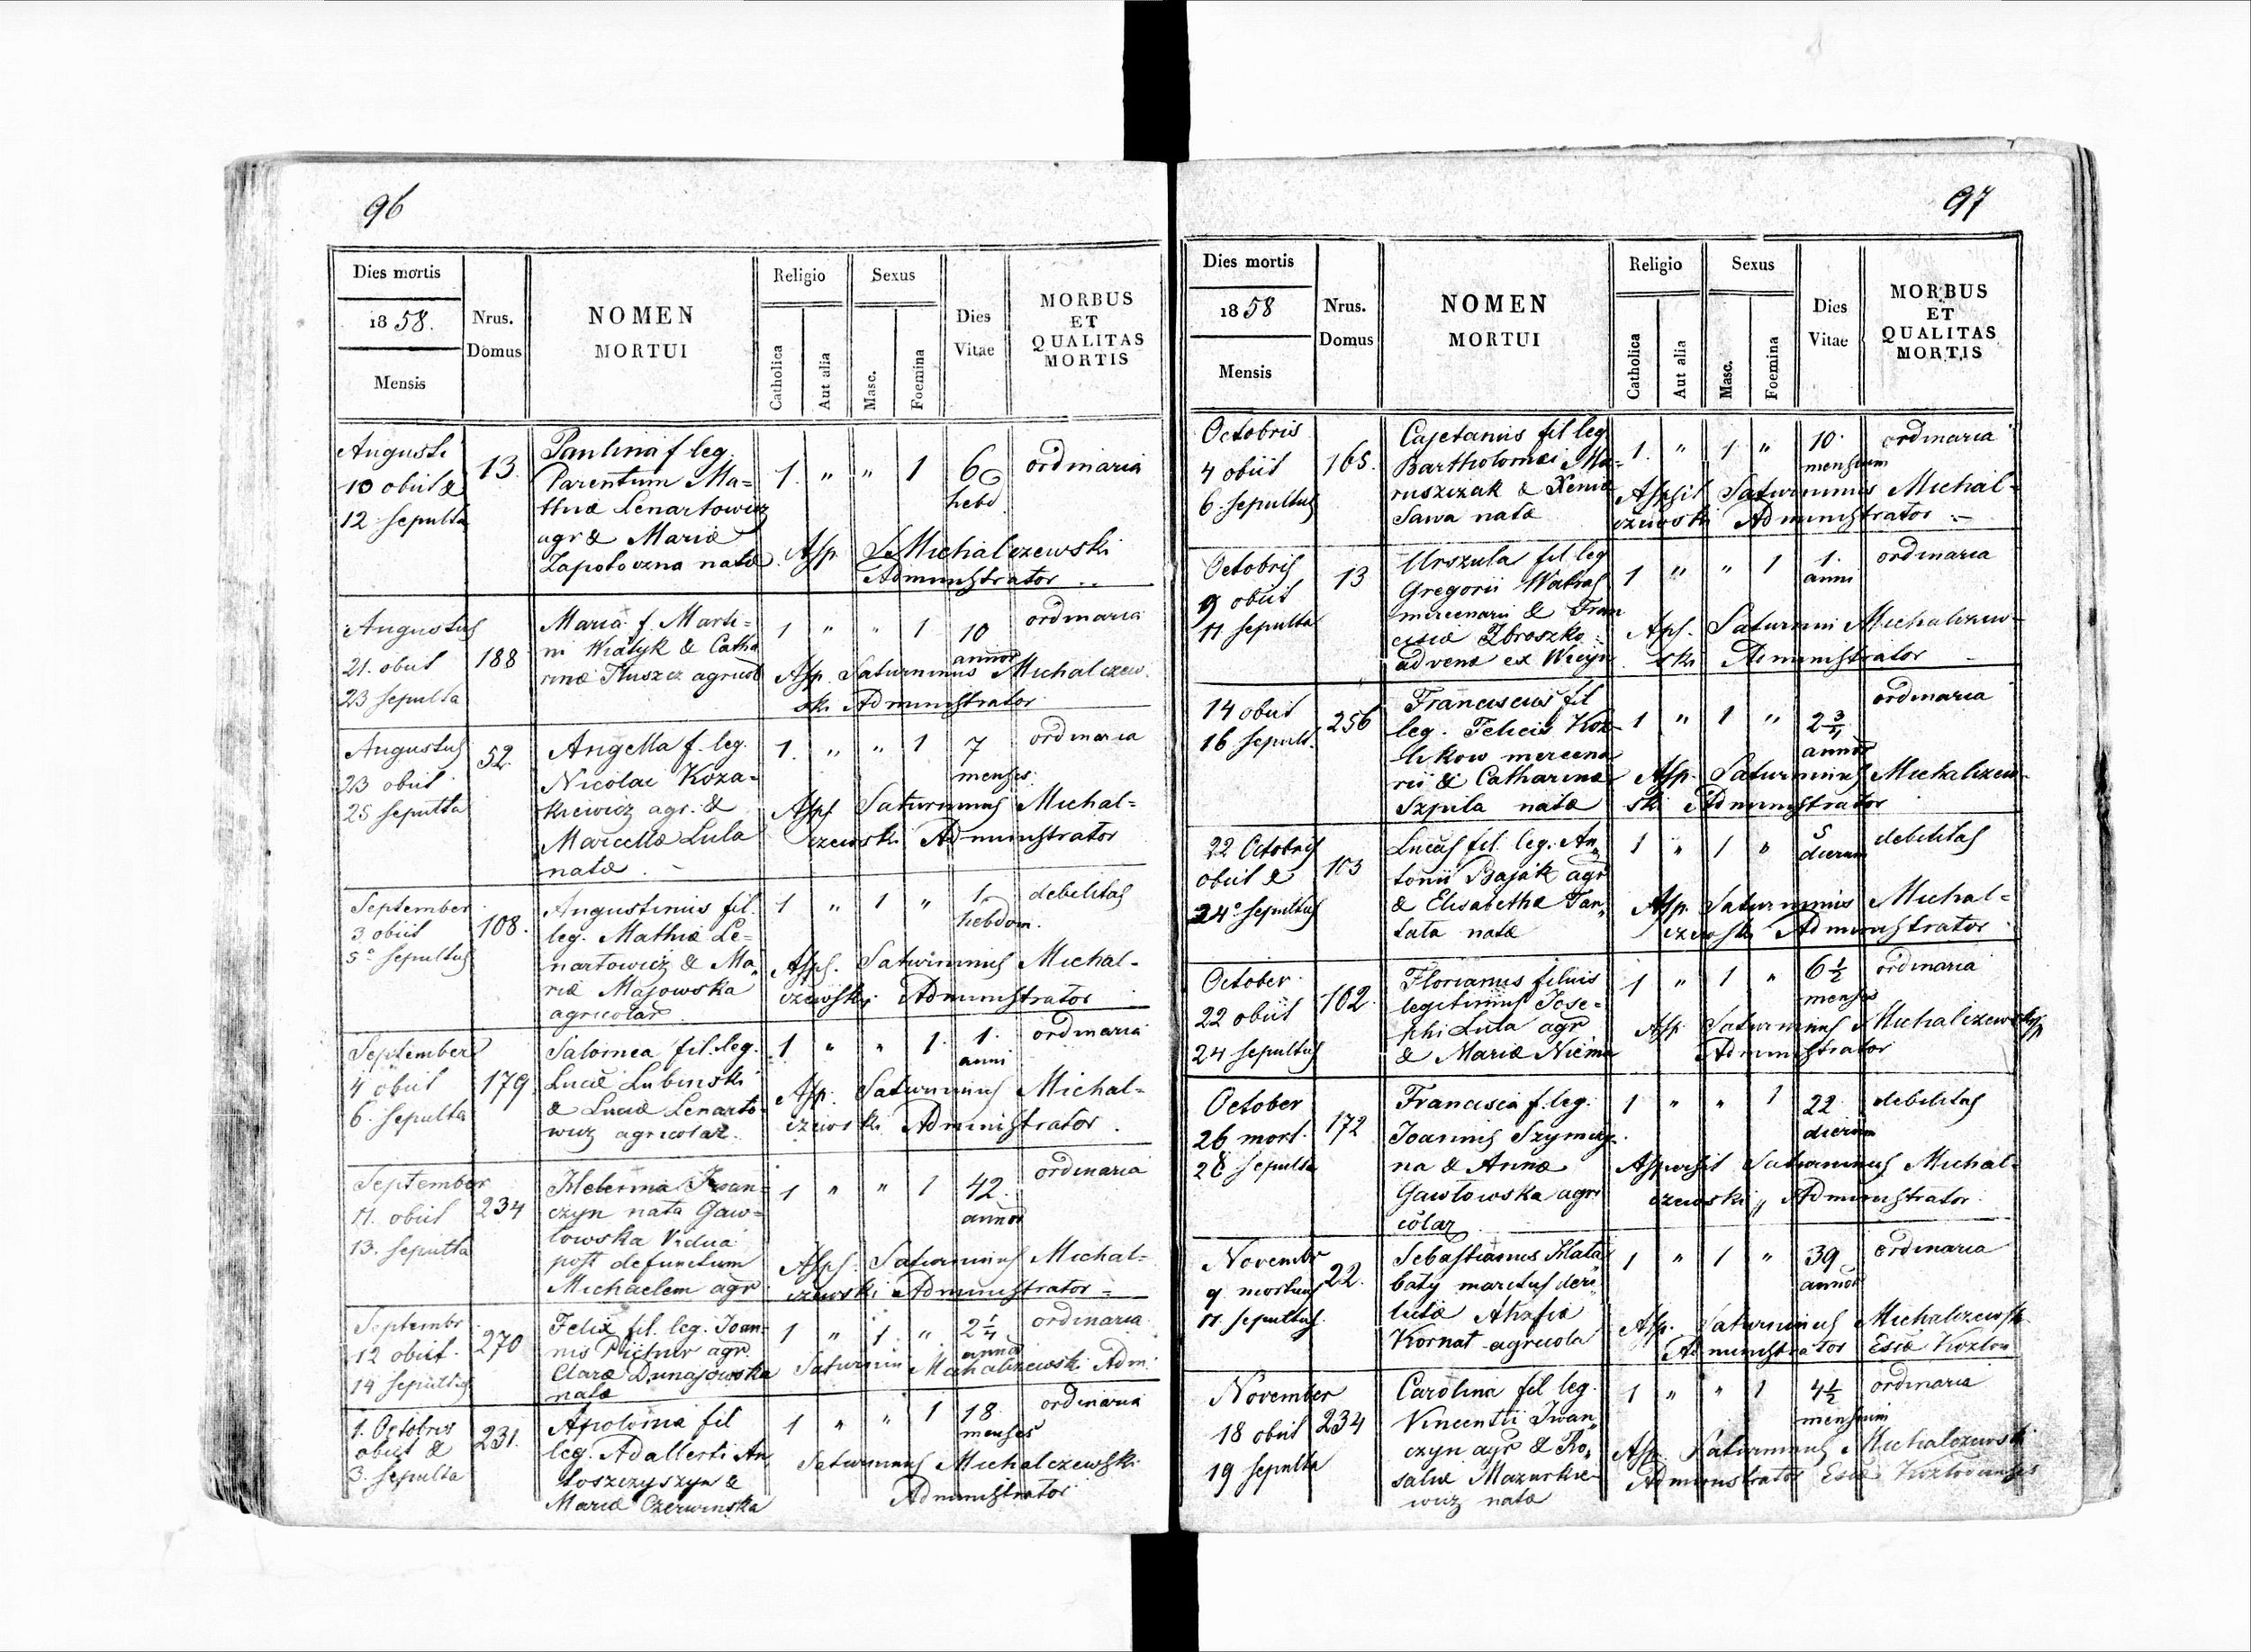 96
Dies mortis
1858.
Mensis
Nrus.
Domus
NOMEN
MORTUI
Religio
Catholica
Aut alia
Sexus
Masc.
Foemina
Dies
Vitae
MORBUS
ET
QUALITAS
MORTIS
Augusti
10 obiit &
12 sepulta
13.
Paulina f leg.
Parentum Ma=
thiæ Lenartowicz
agr & Mariæ
Zapotoczna natæ
1. " " 1 6 hebd ordinaria
Asp S. Michalczewski
Administrator
Augustus
21. obiit
23 sepulta
188
Maria f. Marti=
ni Wiatyk & Catha
rinæ Tłuszcz agricol
1 " " 1 10 annor ordinaria
Asp. Saturninus Michalczew.
ski Administrator
Augustus
23 obiit
25 sepulta
52.
Angella f. leg.
Nicolai Koza=
kiewicz agr. &
Marcellæ Lula
natæ
1. " " 1 7 menses ordinaria
Asps Saturninus Michal=
czewski Administrator
September
3 obiit
5º sepultus
108.
Augustinus fil.
leg. Mathiæ Le=
nartowicz & Ma"
riæ Majowska
agricolar
1 " 1 " 1. hebdom. debilitas
Asps. Saturninus Michal-
czewski Administrator
September
4 obiit
6. sepulta
179.
Salomea fil. leg.
Lucæ Lubinski
& Luciæ Lenarto-
wicz agricolar.
1 " " 1. 1. anni ordinaria
Asp. Saturninus Michal=
czewski Administrator.
September
11. obiit
13. sepulta
234
Iwan=
czyn nata Gaw=
łowska Vidua
post defunctum
Michaelem agr
1 " " 1 42. annor ordinaria
Asps. Saturninus Michal=
czewski Administrator =
Septembr
12 obiit.
14 sepultus
270
Felix fil. leg. Joan=
nis agr.
Claræ Dunajowska
natæ
1 " 1. " 2¼ annor ordinaria
Saturnin Michalczewski Adm.
1. Octobris
obiit &
3. sepulta
231.
Apolonia fil
leg. Adalberti An
toszczyszyn &
Mariæ Czerwinska
1 " " 1 18. menses ordinaria
Saturninus Michalczewski
Administrator
97
Dies mortis
1858
Mensis
Nrus.
Domus
NOMEN
MORTUI
Religio
Catholica
Aut alia
Sexus
Masc.
Foemina
Dies
Vitae
MORBUS
ET
QUALITAS
MORTIS
Octobris
4 obiit
6. sepultus
165.
Cajetanus fil leg
Bartholomæi Ma=
ruszczak & Xeniæ
Sawa natæ
1. " 1 " 10. mensium ordinaria
Aspsit Saturninus Michal=
czewski Administrator
Octobris
9 obiit
11 sepulta
13
Urszula fil leg
Gregorii Watras
mercenarii & Fran
ciscæ Zbroszko
advenæ ex Wicyn
1 " " 1 1. anni ordinaria
Aps. Saturnin Michalczew=
ski Administrator
14 obiit
16 sepult.
256
Franciscus fil
leg. Felicis Koz=
likow mercena
rii & Catharinæ
Szpula natæ
1 " 1 " 2¾ annor ordinaria
Asp. Saturninus Michalczew-
ski Administrator
22 Octobris
obiit &
24º sepultus
103
Lucas fil. leg. An"
tonii Bajak agr
& Elisabethæ Tan"
tala natæ
1 " 1 " 5 dierum debilitas
Asp. Saturninus Michal=
czewski Administrator.
October
22 obiit
24 sepultus
102.
Florianus filius
legitimus Jose=
phi Lula agr
& Mariæ Niema
1 " 1 " 6½ menses ordinaria
Asp Saturninus Michalczewski
Administrator
October
26 mort.
28 sepulta
172
Francisca f. leg.
Joannis Szymczy
na & Annæ
Gawłowska agri
colar
1 " " 1 22 dierum debilitas
Aspersit Saturninus Michal=
czewski " Administrator.
Novembr
9. mortuus
11. sepultus.
22.
Sebastianus Hlata
baty maritus dere"
lictæ Ahafiæ
Kornat agricola
1 " 1 " 39 annor ordinaria
Asp. Saturninus Michalczewski
Administrator Esiæ Kozłow
November
18 obiit
19 sepulta
234
Carolina fil leg.
Vincentii Iwan"
czyn agr & Ro"
saliæ Mazurkie-
wicz natæ
1 " " 1 4½ mensium ordinaria
Asp Saturninus Michalczewski
Administrator Esiæ